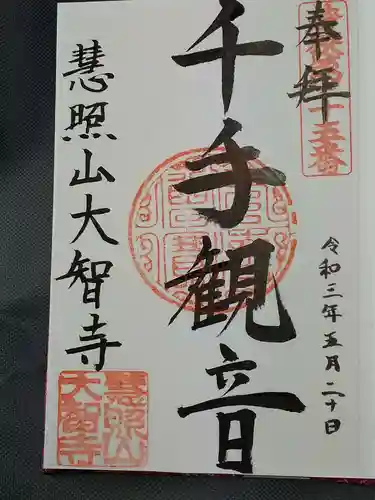 奉拝
令和三年五月二十日
千手観音
慧照山大智寺
慧照山
大智寺